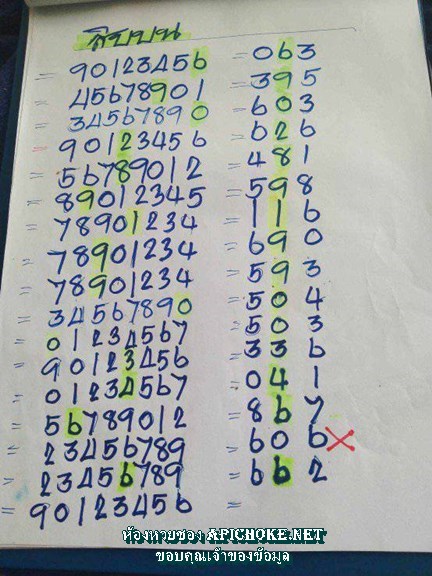 สิบบน
= 90123456 = 063
= 45678901 = 395
= 34567890 = 603
= 90123456 = 626
= 56789012 = 481
= 89012345 = 598
= 78901234 = 116
= 78901234 = 690
= 78901234 = 593
= 34567890 = 504
= 01234567 = 503
= 90123456 = 336
= 01234567 = 041
= 56789012 = 867
= 23456789 = 606 X
= 23456789 = 662
= 90123456 =
ห้องหวยซอง APICHOKE.NET
ขอบคุณเจ้าของข้อมูล